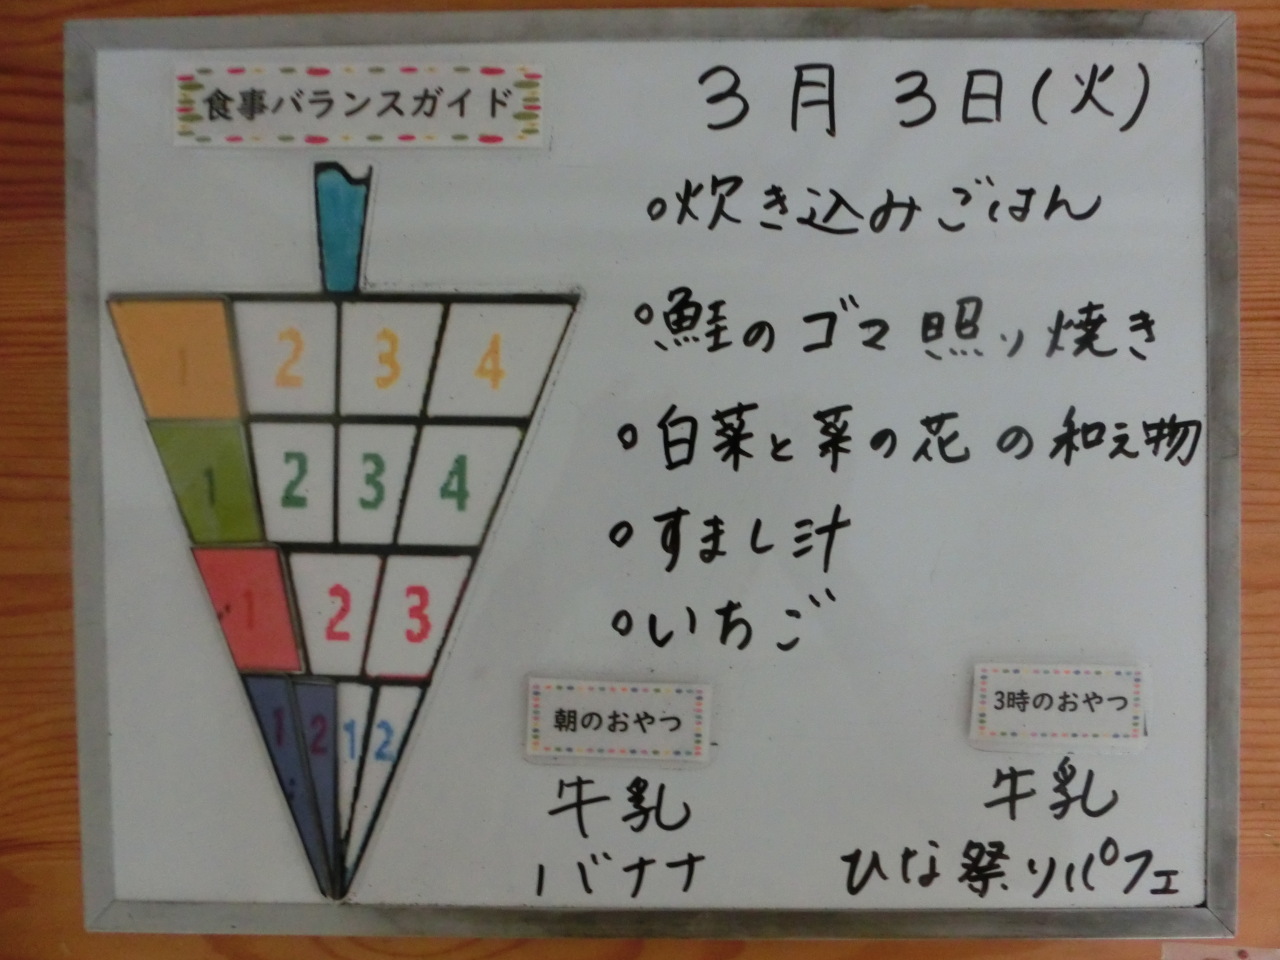 食事バランスガイド
3月3日(火)
炊き込みごはん
鮭のゴマ照り焼き
白菜と菜の花の和え物
すまし汁
いちご
1 2 3 4
1 2 3 4
1 2 3
1 2 1 2
朝のおやつ
牛乳
バナナ
3時のおやつ
牛乳
ひな祭りパフェ